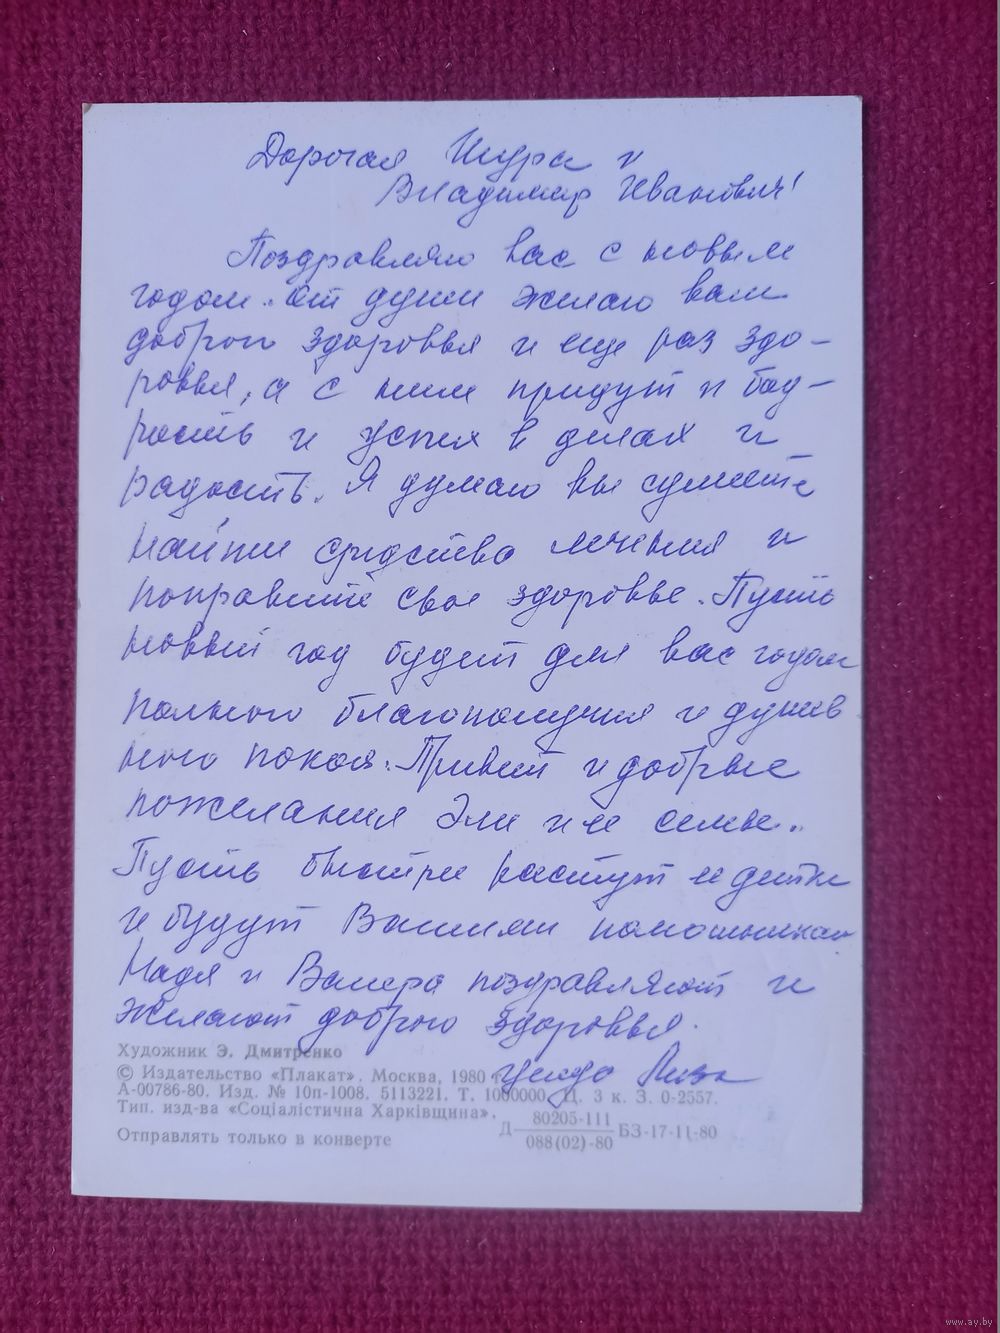 Дорогая Шура и
Владимир Иванович!
Поздравляю вас с новым
годом. От души желаю вам
доброго здоровья и еще раз здо-
ровья, а с ним придут и бод-
рость и успех в делах и
радость. Я думаю вы сумеете
найти средство лечения и
поправите свое здоровье. Пусть
новый год будет для вас годом
полного благополучия и душев
ного покоя. Привет и добрые
пожелания Эли и ее семье.
Пусть быстрее растут ее детки
и будут Вашими помошникам
Надя и Валера поздравляют и
желают доброго здоровья.
Целую Лиза
Художник Э. Дмитренко
© Издательство «Плакат». Москва, 1980 г.
А-00786-80. Изд. № 10п-1008. 5113221. Т. 1000000. Ц. 3 к. З. 0-2557.
Тип. изд-ва «Соціалістична Харківщина».
Д 80205-111 / 088(02)-80 БЗ-17-11-80
Отправлять только в конверте
www.ay.by